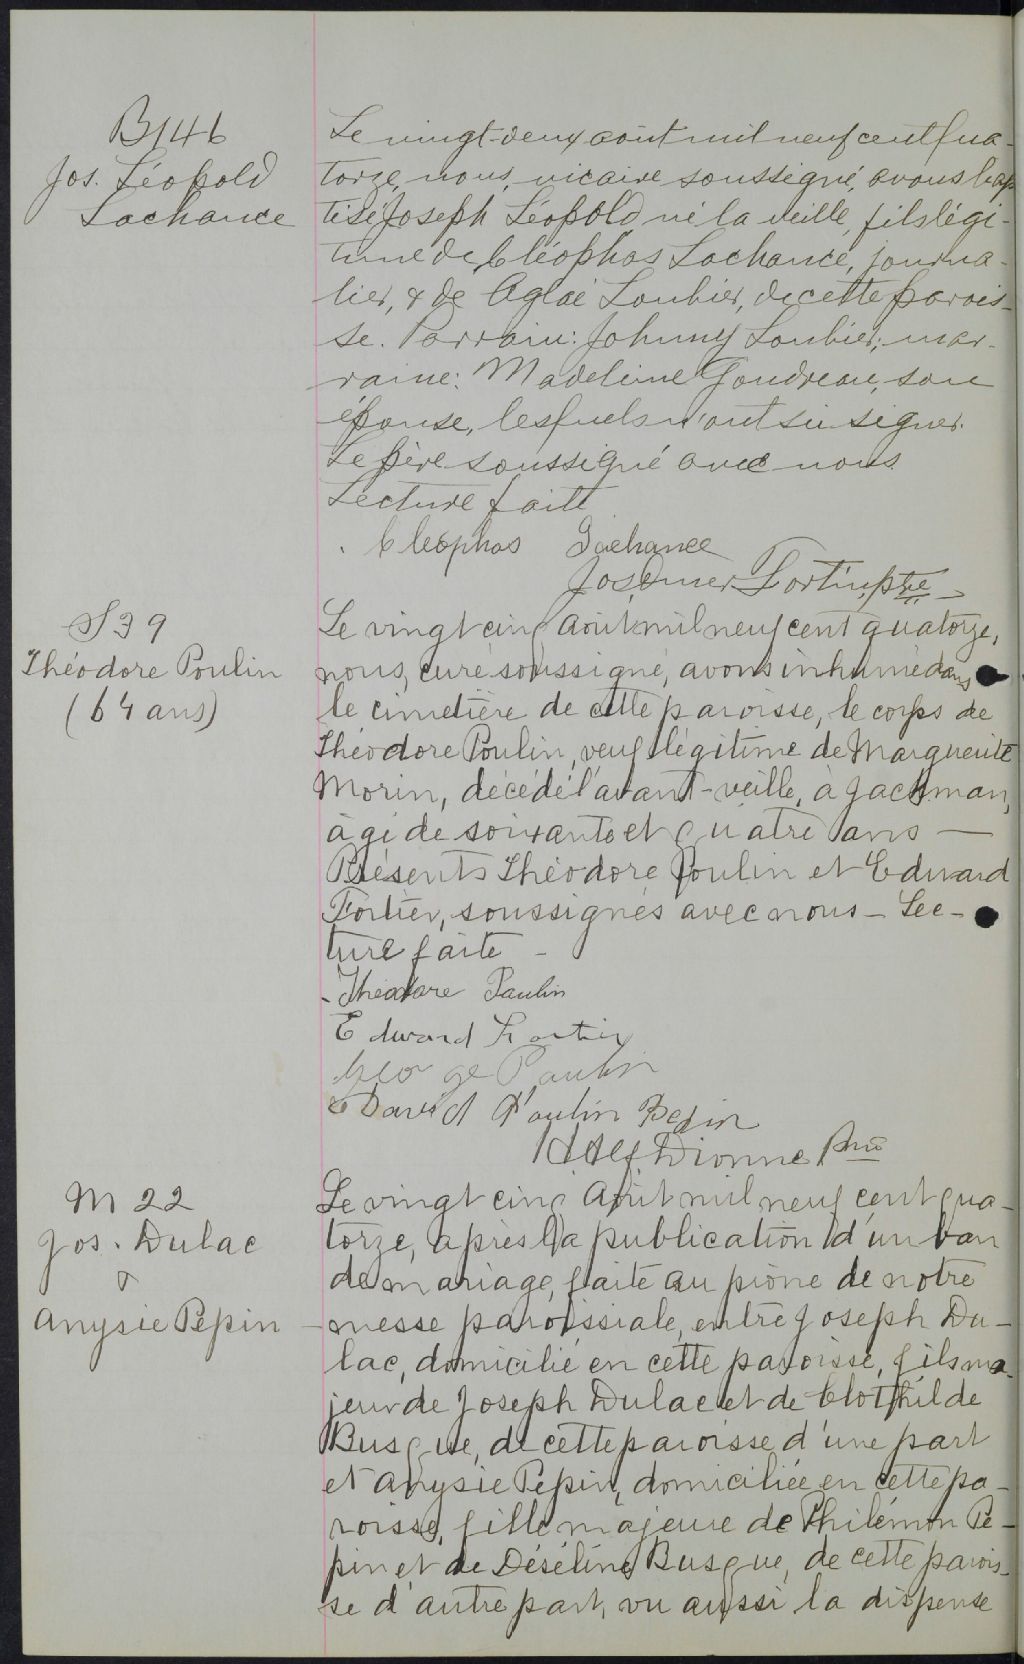 B146
Jos. Léopold
Lachance
Le vingt-deux août mil neuf cent qua-
torze, nous, vicaire soussigné, avons bap
tisé Joseph Léopold né la veille, fils légi-
time de Cléophas Lachance, journa-
lier, & de Aglaé Loubier, de cette parois-
se. Parrain: Johnny Loubier; mar-
raine: Madeleine Goudreau, son
épouse, lesquels n'ont su signer.
Le père soussigné avec nous
Lecture faite
Cléophas Lachance
Jos. Omer Fortin, ptre
S39
Théodore Poulin
(64 ans)
Le vingt cinq Août mil neuf cent quatorze,
nous, curé soussigné, avons inhumé dans
le cimetière de cette paroisse, le corps de
Théodore Poulin, veuf légitime de Marguerite
Morin, décédé l'avant-veille, à Jackman,
âgé de soixante et quatre ans —
Présents Théodore Poulin et Edward
Fortier, soussignés avec nous - Lec-
ture faite -
Théodore Poulin
Edward Fortin
George Poulin
David Poulin Pepin
Alf Dionne Ptre
M 22
Jos. Dulac
&
Anysie Pépin
Le vingt cinq Août mil neuf cent qua-
torze, après la publication d'un ban
de mariage, faite au prône de notre
messe paroissiale, entre Joseph Du-
lac, domicilié en cette paroisse, fils ma-
jeur de Joseph Dulac et de Clothilde
Busque, de cette paroisse d'une part
et Anysie Pépin, domiciliée en cette pa-
roisse, fille majeure de Philémon Pé-
pin et de Déséline Busque, de cette parois-
se d'autre part, vu aussi la dispense